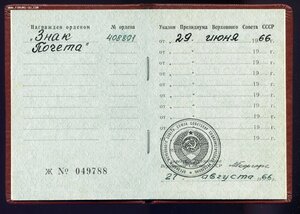 Награжден орденом
№ ордена
„Знак
Почета"
408891
Ж № 049788
Указом Президиума Верховного Совета СССР
от 29. июня 1966 г.
от 19 г.
от 19 г.
от 19 г.
от 19 г.
от 19 г.
от 19 г.
21 августа 66 г.